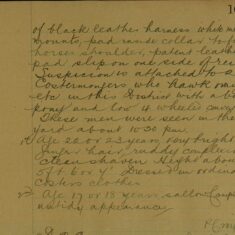 10
of black leather harness white metal
mounts, pad raise collar to fit
horses shoulder, patent leather
pad slip on one side of rein
Suspicion is attached to 2
Costermongers who hawk
etc in this Division with a bay
pony and low 4 wheeled
These men were seen in the
yard about 10.30 pm
1st Age 22 or 23 years height
hair, ruddy complexion
clean shaven Height about
5ft 6 or 7. Dressed in ordinary
Costers clothes
2nd Age 17 or 18 years sallow Comp
untidy appearance